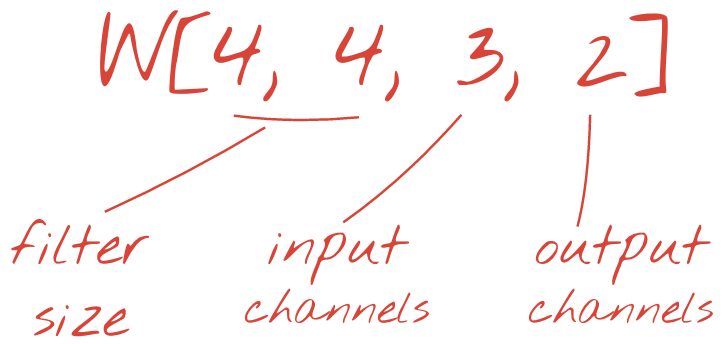 W[4, 4, 3, 2]
filter size
input channels
output channels